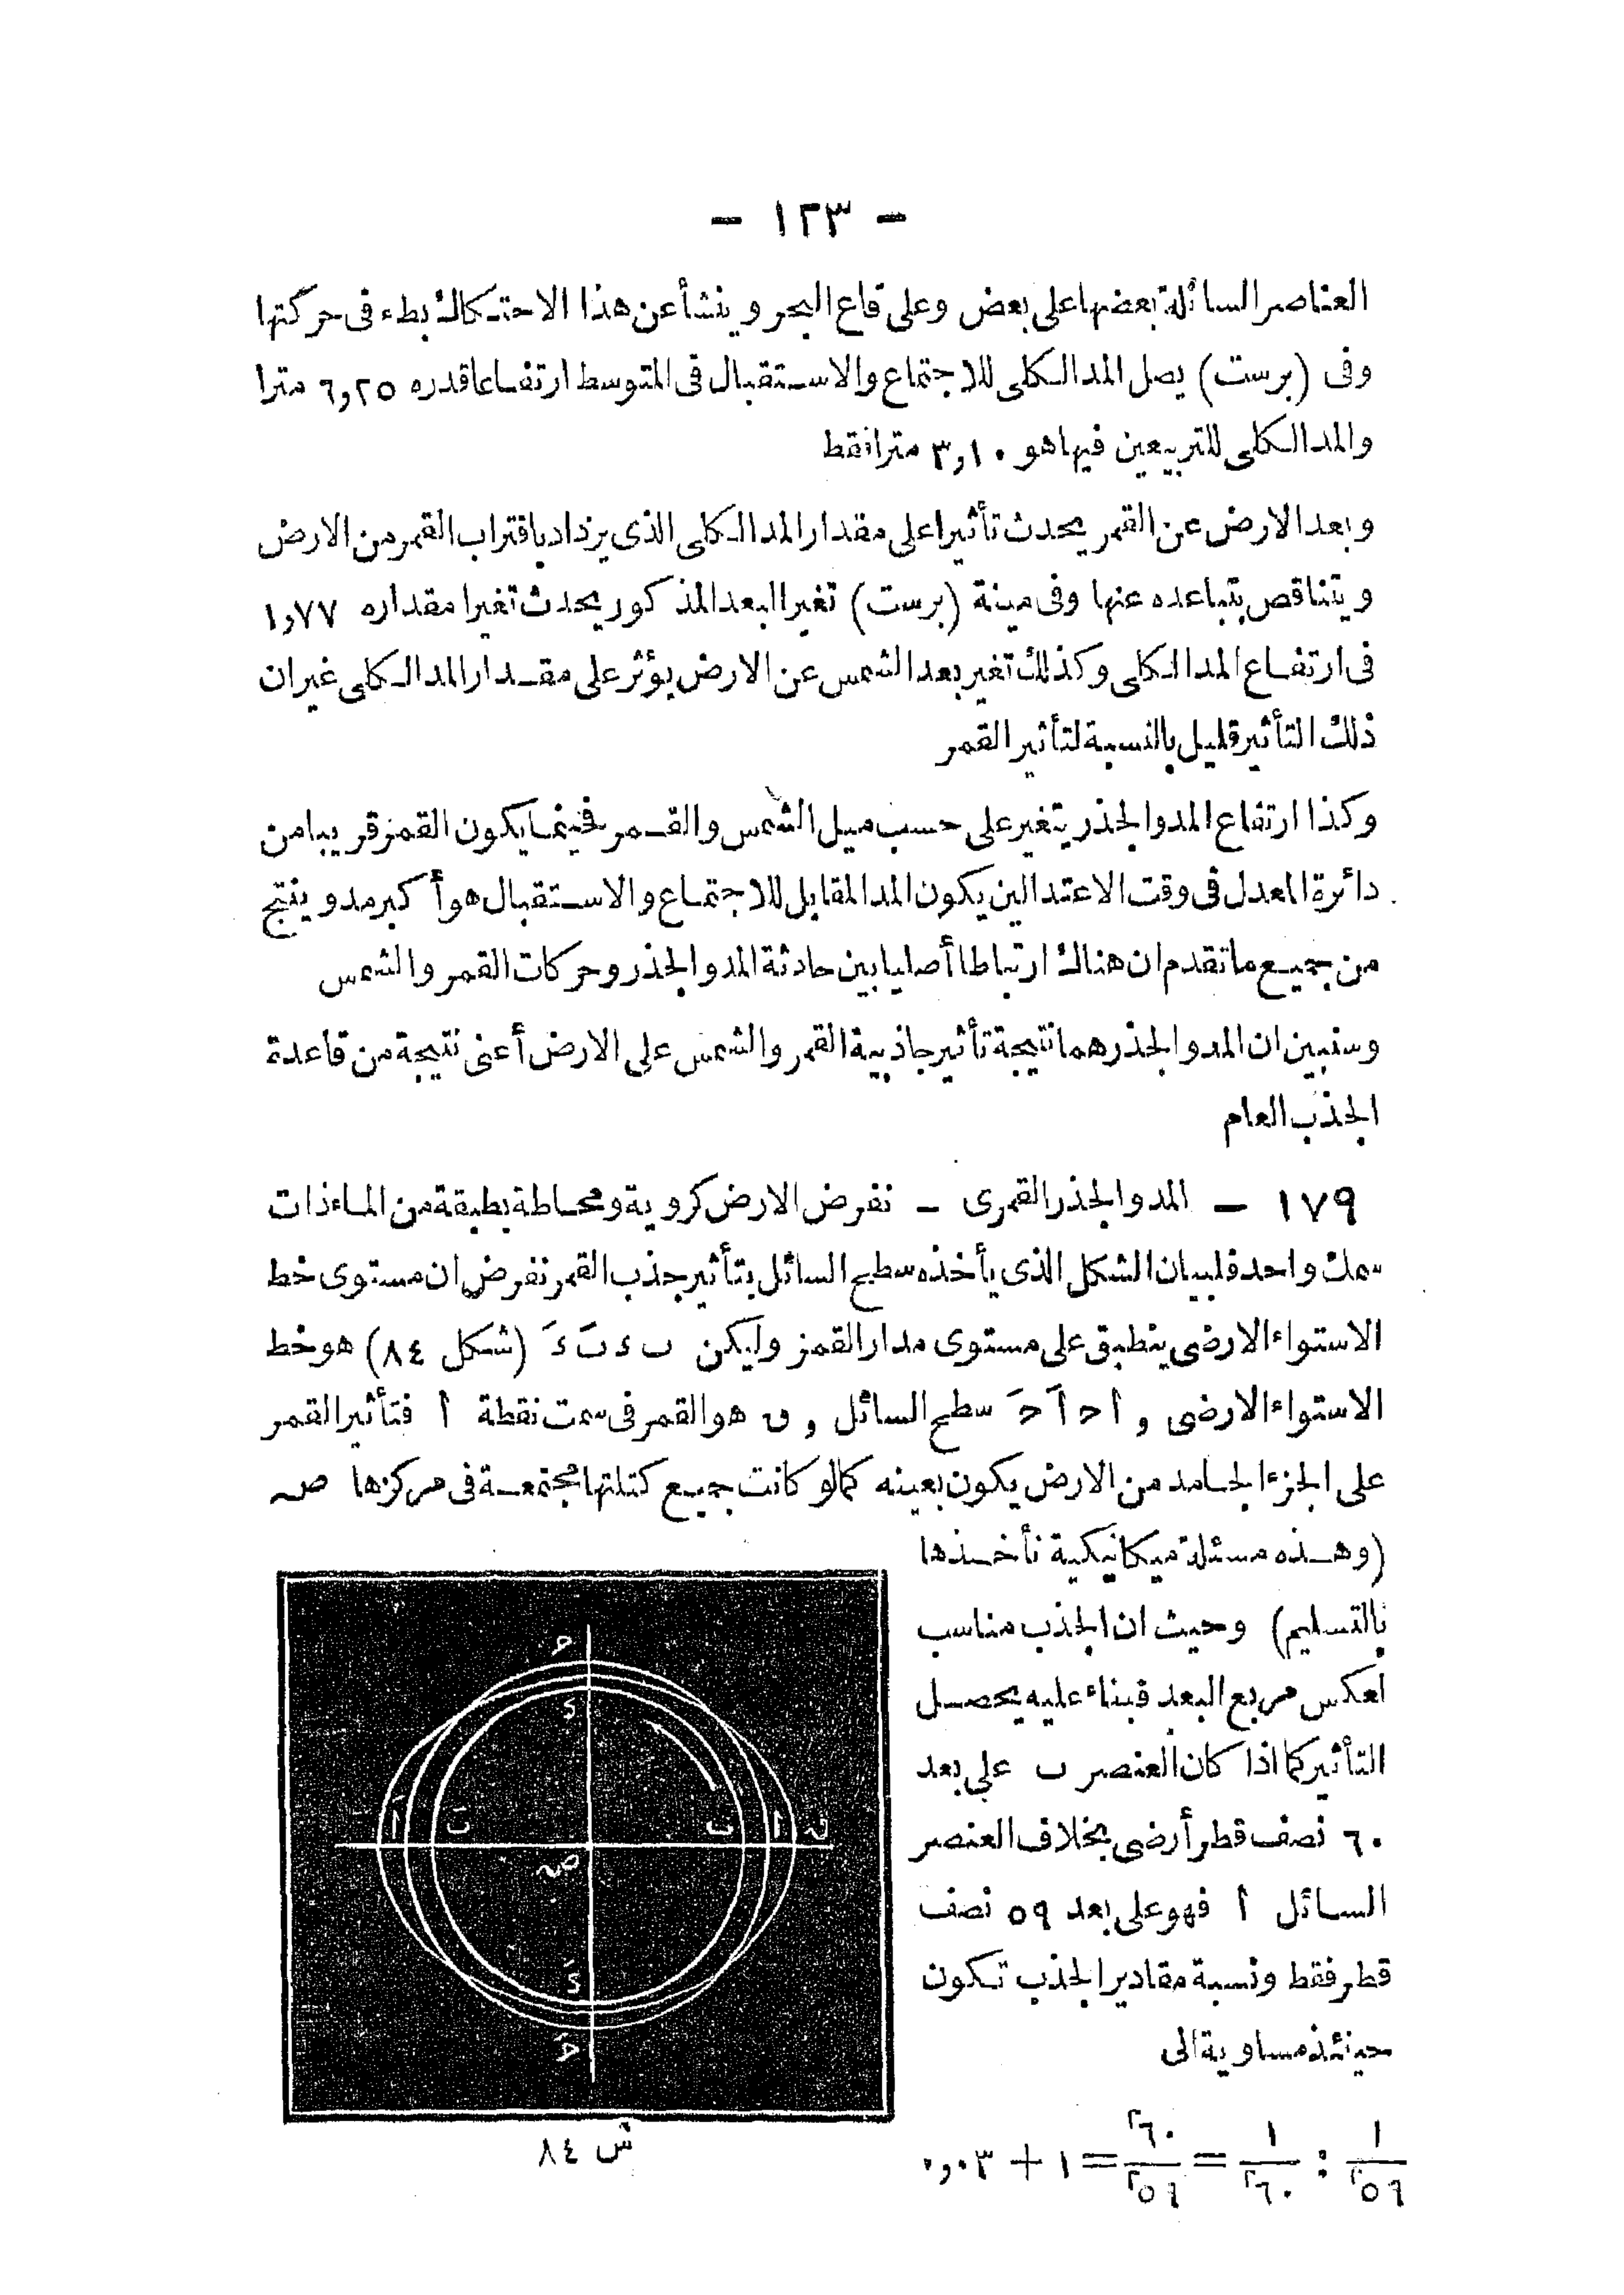 — ١٢٣ —
العناصر السائلة بعضها على بعض وعلى قاع البحر وينشأ عن هذا الاحتكاك بطء فى حركتها
وفى (برست) يصل المد الكلى للاجتماع والاستقبال فى المتوسط ارتفاعا قدره ٦,٢٥ مترا
والمد الكلى للتربيعين فيها هو ٣,١٠ مترا فقط
وبعد الارض عن القمر يحدث تأثيرا على مقدار المد الكلى الذى يزداد باقتراب القمر من الارض
ويتناقص بتباعده عنها وفى مينة (برست) تغير البعد المذكور يحدث تغيرا مقداره ١,٧٧
فى ارتفاع المد الكلى وكذلك تغير بعد الشمس عن الارض يؤثر على مقدار المد الكلى غير ان
ذلك التأثير قليل بالنسبة لتأثير القمر
وكذا ارتفاع المد والجذر يتغير على حسب ميل الشمس والقمر فحينما يكون القمر قريبا من
دائرة المعدل فى وقت الاعتدالين يكون المد المقابل للاجتماع والاستقبال هو أكبر مد وينتج
من جميع ما تقدم ان هناك ارتباطا أصليا بين حادثة المد والجذر وحركات القمر والشمس
وسنبين ان المد والجذر هما نتيجة تأثير جاذبية القمر والشمس على الارض أعنى نتيجة من قاعدة
الجذب العام
١٧٩ — المد والجذر القمرى — نفرض الارض كروية ومحاطة بطبقة من الماء ذات
سمك واحد فلبيان الشكل الذى يأخذه سطح السائل بتأثير جذب القمر نفرض ان مستوى خط
الاستواء الارضى ينطبق على مستوى مدار القمر وليكن ب ء بَ ءَ (شكل ٨٤) هو خط
الاستواء الارضى و ا ح اَ حَ سطح السائل و ق هو القمر فى سمت نقطة ا فتأثير القمر
على الجزء الجامد من الارض يكون بعينه كما لو كانت جميع كتلتها مجتمعة فى مركزها صہ
(وهذه مسئلة ميكانيكية نأخذها
بالتسليم) وحيث ان الجذب مناسب
لعكس مربع البعد فبناء عليه يحصل
التأثير كما اذا كان العنصر ب على بعد
٦٠ نصف قطر أرضى بخلاف العنصر
السائل ا فهو على بعد ٥٩ نصف
قطر فقط ونسبة مقادير الجذب تكون
حينئذ مساوية الى
١/٥٩٢ : ١/٦٠٢ = ٦٠٢/٥٩٢ = ١ + ٠,٠٣
ح
ء
اَ بَ صہ ب ا ق
ءَ
حَ
ش ٨٤